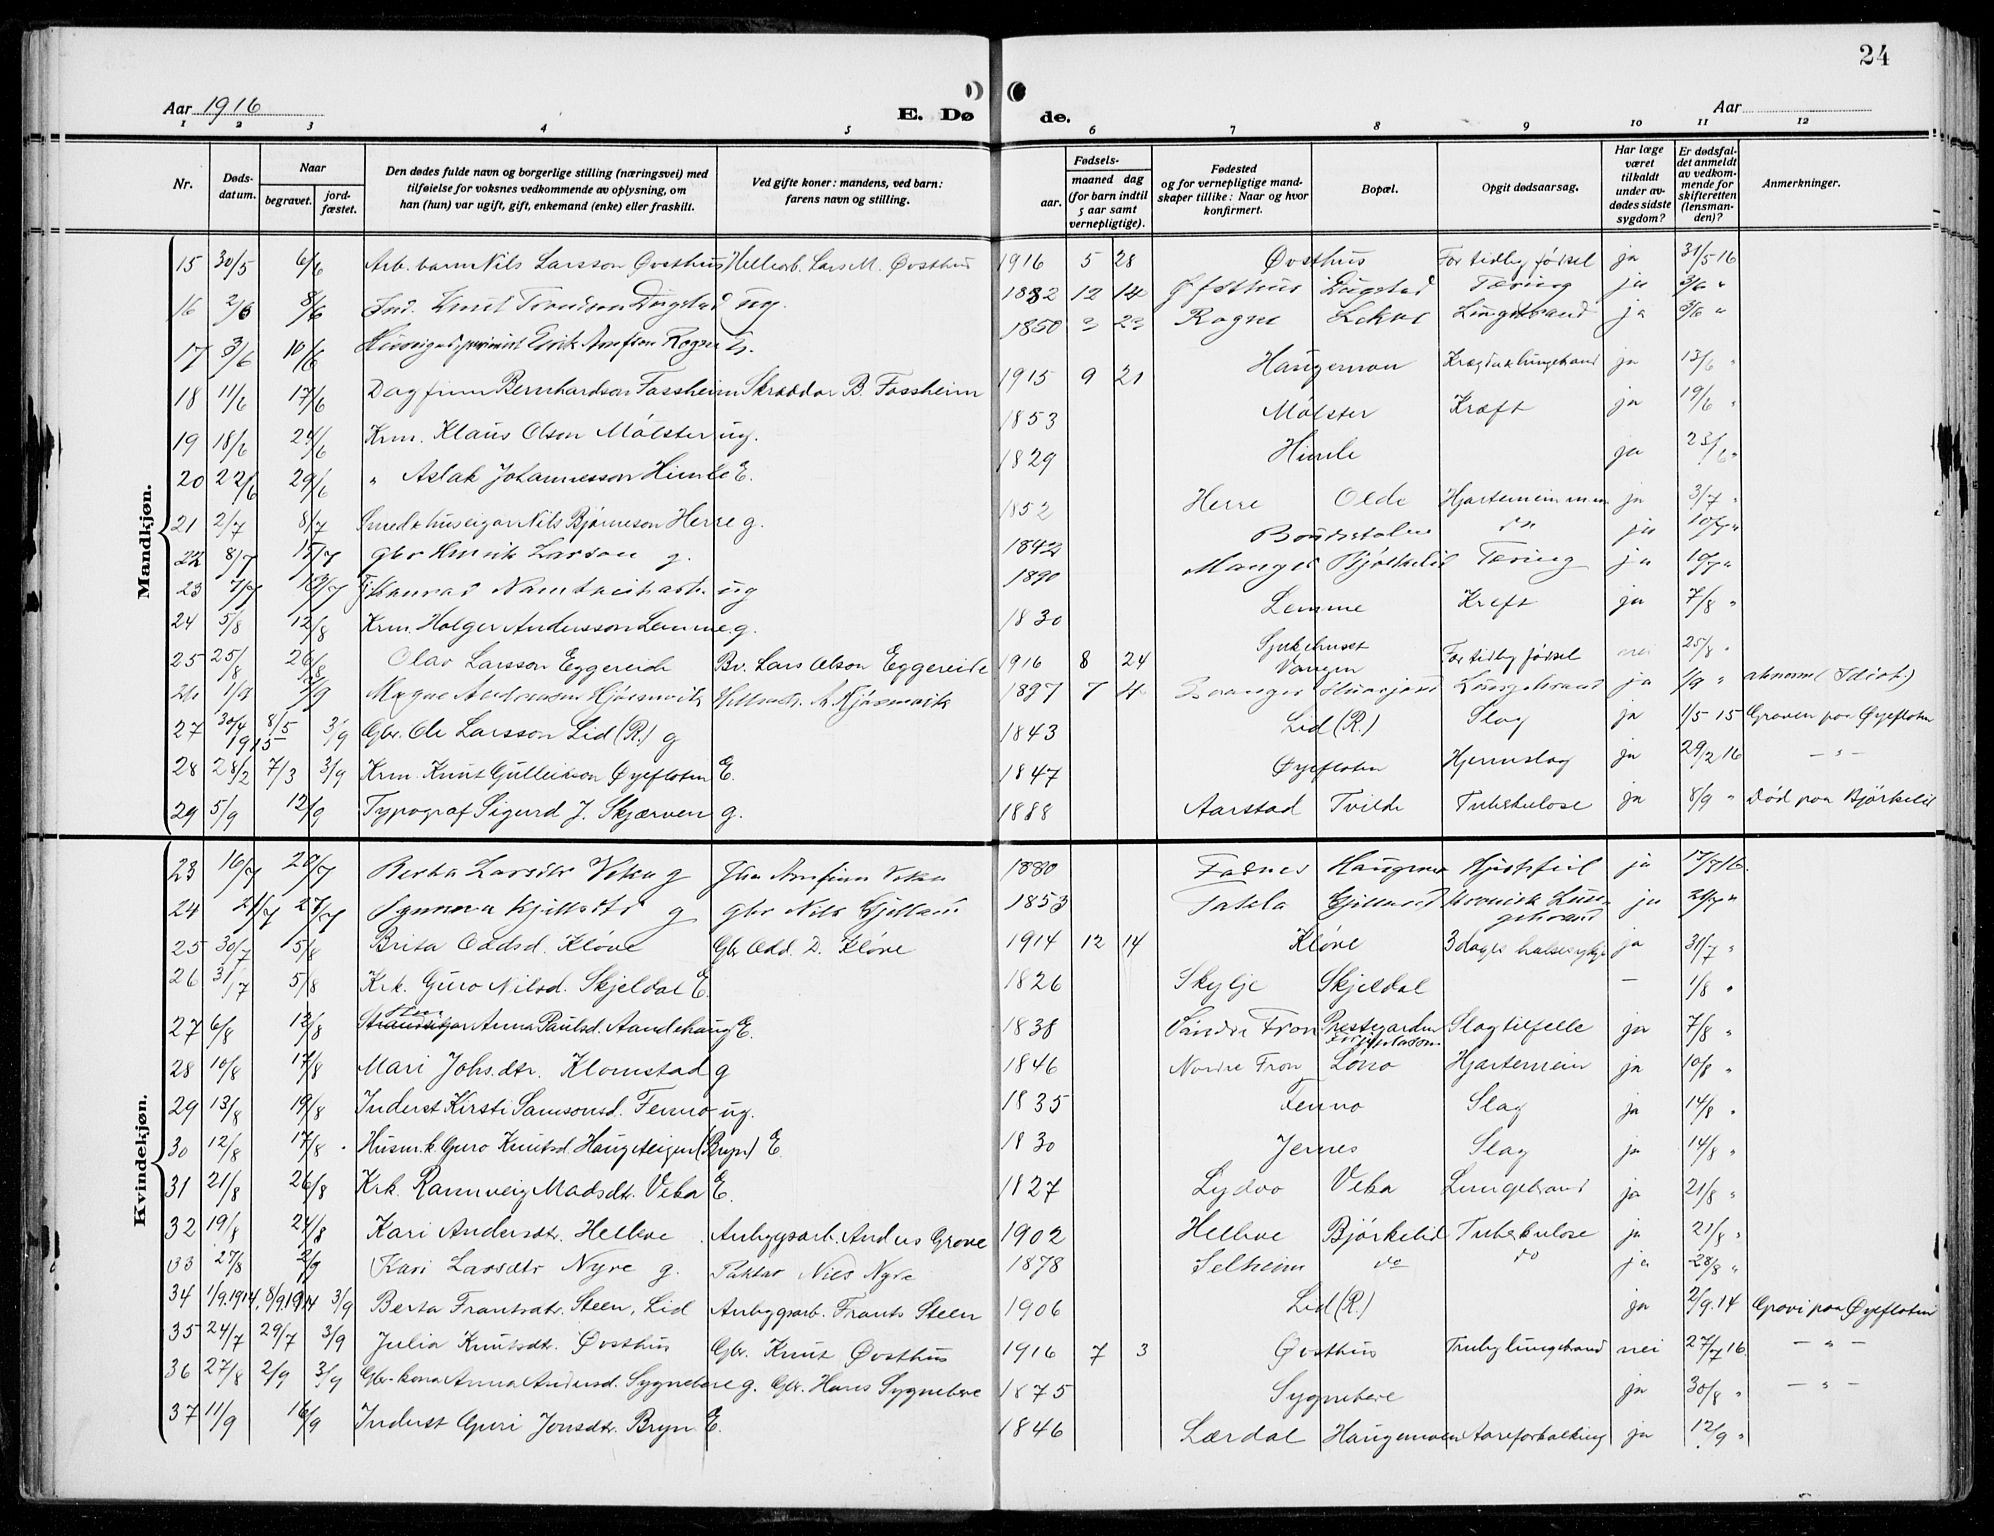 24
Aar 1916 E. Dø de. Aar
1 2 3 4 5 6 7 8 9 10 11 12
Nr. Døds-datum. Naar begravet. jord-fæstet. Den dødes fulde navn og borgerlige stilling (næringsvei) med tilføielse for voksnes vedkommende av oplysning, om han (hun) var ugift, gift, enkemand (enke) eller fraskilt. Ved gifte koner: mandens, ved barn: farens navn og stilling. Fødsels- aar. maaned dag (for barn indtil 5 aar samt vernepligtige). Fødested og for vernepligtige mand-skaper tillike: Naar og hvor konfirmert. Bopæl. Opgit dødsaarsag. Har læge været tilkaldt under av-dødes sidste sygdom? Er dødsfal-det anmeldt av vedkom-mende for skifteretten (lensman-den)? Anmerkninger.
Mandkjøn.
15 30/5 6/6 Arb. barn Nils Larsson Øvsthus Hellearb. Lars M. Øvsthus 1916 5 28 Øvsthus For tidleg fødsel ja 31/5 16
16 2/6 8/6 Ind. Knut Dugstad ug. 1882 12 14 Dugstad Tæring ja 3/6 "
17 3/6 10/6 Eirik Rogne 1850 Rogne Lungebrand ja 3/6 "
18 11/6 17/6 Dagfinn Bernhardson Fossheim Skræddar B. Fossheim 1915 9 21 Haugemoen lungebrand ja 13/6 "
19 18/6 24/6 Krm. Klaus Olson Mølster ug. 1853 Mølster Kræft ja 19/6 "
20 22/6 29/6 " Aslak Johannesson Himle E. 1829 Himle ja 23/6 "
21 2/7 8/7 Smed & huseigar Nils Bjørneson Herre g. 1852 Herre Olde Hjartemein ja 3/7 "
22 8/7 15/7 Gbr Henrik Larson g. 1842 do ja 10/7 "
23 7/7 Konrad ug 1890 Manger Bjørkelid Tæring ja 10/7 "
24 5/8 12/8 Krm. Holger Andersson Lemme g. 1830 Lemme Kreft ja 7/8 "
25 25/8 26/8 Olav Larsson Eggereide Bv. Lars Olson Eggereide 1916 8 24 Sjukehuset Vangen For tidleg fødsel nei 25/8 "
26 1/9 7/9 Magne Andersson 1897 7 4 Lungebrand ja 1/9 " abnorm (Idiot.)
27 30/4 1915 8/5 3/9 Gbr. Ole Larsson Lid (R.) g 1843 Lid (R.) Slag ja 1/5 15 Graven paa Øyefloten
28 28/2 7/3 3/9 Krm. Knut Gulleikson Øyefloten E. 1847 Øyefloten Hjernslag ja 29/2 16 — " —
29 5/9 12/9 Typograf Sigurd J. Skjærven g. 1888 Aarstad Tvilde Tuberkulose ja 8/9 " Død paa Bjørkelid
Kvindekjøn.
23 16/7 20/7 Berta Larsdtr Veka g Arnfinn Veka 1880 Fadnes Haugemo Hjertefeil ja 17/7 16.
24 21/7 27/7 Synneva g Gbr Nils 1853 Takla Kronisk Lungebrand ja "
25 30/7 5/8 Brita Oddsd. Kløve Gbr. Odd. D. Kløve 1914 12 14 Kløve 3 dages halsesykje ja 31/7 "
26 31/7 5/8 Krk. Guro Nilsd. Skjeldal E. 1826 Skylje Skjeldal — 1/8 "
27 6/8 12/8 Anna Paulsd. Aandehaug E. 1838 Søndre Fron Prestegarden Slagtilfelle ja 7/8 "
28 10/8 17/8 Mari Johs.dtr. Klomstad g 1846 Nordre Fron Lono Hjartemein ja 10/8 "
29 13/8 19/8 Inderst Kirsti Samsonsd. Fenno ug. 1835 Fenno Slag ja 14/8 "
30 12/8 17/8 Husm.k. Guro Knutsd. Haugsteigen (Bryn) E. 1830 Jernes Slag ja 14/8 "
31 21/8 26/8 Krk. Rannveig Madsdtr. Veka E. 1827 Lydvo Veka Lungebrand ja 21/8 "
32 19/8 24/8 Kari Andersdtr. Helleve Anbygsarb. Anders Grove 1902 Helleve Bjørkelid Tuberkulose ja 21/8 "
33 27/8 2/9 Kari Larsdtr Nyre g. Nils Nyre 1878 Selheim do do ja 28/8 "
34 1/9.1914. 8/9.1914 3/9 Berta Frantsdtr. Steen, Lid Anbygsarb. Frants Steen 1906 Lid (R.) ja 2/9.14 Gravi paa Øyefloten
35 24/7 29/7 3/9 Julia Knutsdtr. Øvsthus Gbr. Knut Øvsthus 1916 7 3 Øvsthus lungebrand nei 27/7 16. — " —
36 27/8 2/9 3/9 Gbr-kona Anna Andersd. Sygnebere g. Gbr. Hans Sygnebere 1875 Sygnebere ja 30/8 " — " —
37 11/9 16/9 Inderst Guri Jonsdtr. Bryn E. 1846 Lærdal Haugemoen Aareforkalking ja 12/9 "